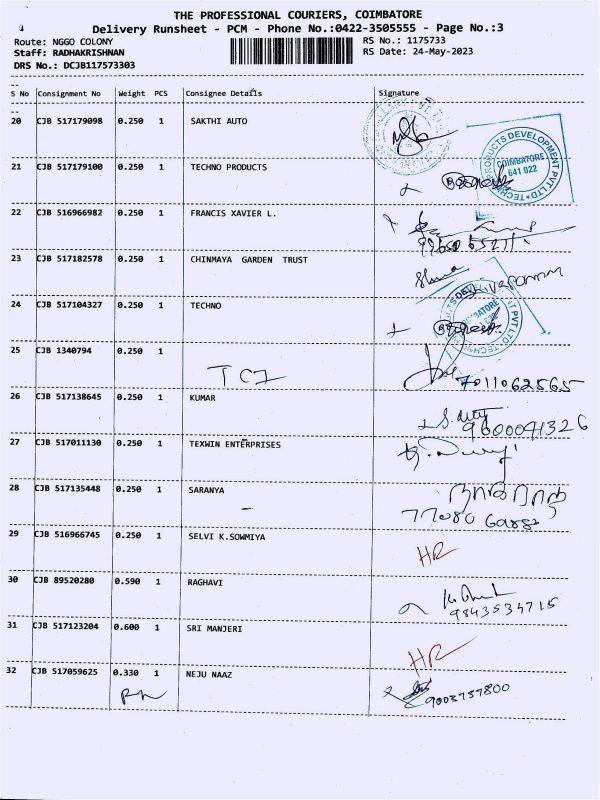 THE PROFESSIONAL COURIERS, COIMBATORE
Delivery Runsheet - PCM - Phone No.:0422-3505555 - Page No.:3
Route: NGGO COLONY
RS No.: 1175733
Staff: RADHAKRISHNAN
RS Date: 24-May-2023
DRS No.: DCJB117573303
S No Consignment No Weight PCS Consignee Details Signature
20 CJB 517179098 0.250 1 SAKTHI AUTO
PRODUCTS DEVELOPMENT PVT LTD
COIMBATORE
641 022
21 CJB 517179100 0.250 1 TECHNO PRODUCTS
22 CJB 516966982 0.250 1 FRANCIS XAVIER L.
23 CJB 517182578 0.250 1 CHINMAYA GARDEN TRUST
24 CJB 517104327 0.250 1 TECHNO
25 CJB 1340794 0.250 1
TCI
7011062565
26 CJB 517138645 0.250 1 KUMAR
9600091326
27 CJB 517011130 0.250 1 TEXWIN ENTERPRISES
28 CJB 517135448 0.250 1 SARANYA
77080
29 CJB 516966745 0.250 1 SELVI K.SOWMIYA
HR
30 CJB 89520280 0.590 1 RAGHAVI
9843534715
31 CJB 517123204 0.600 1 SRI MANJERI
HR
32 CJB 517059625 0.330 1 NEJU NAAZ
9003757800